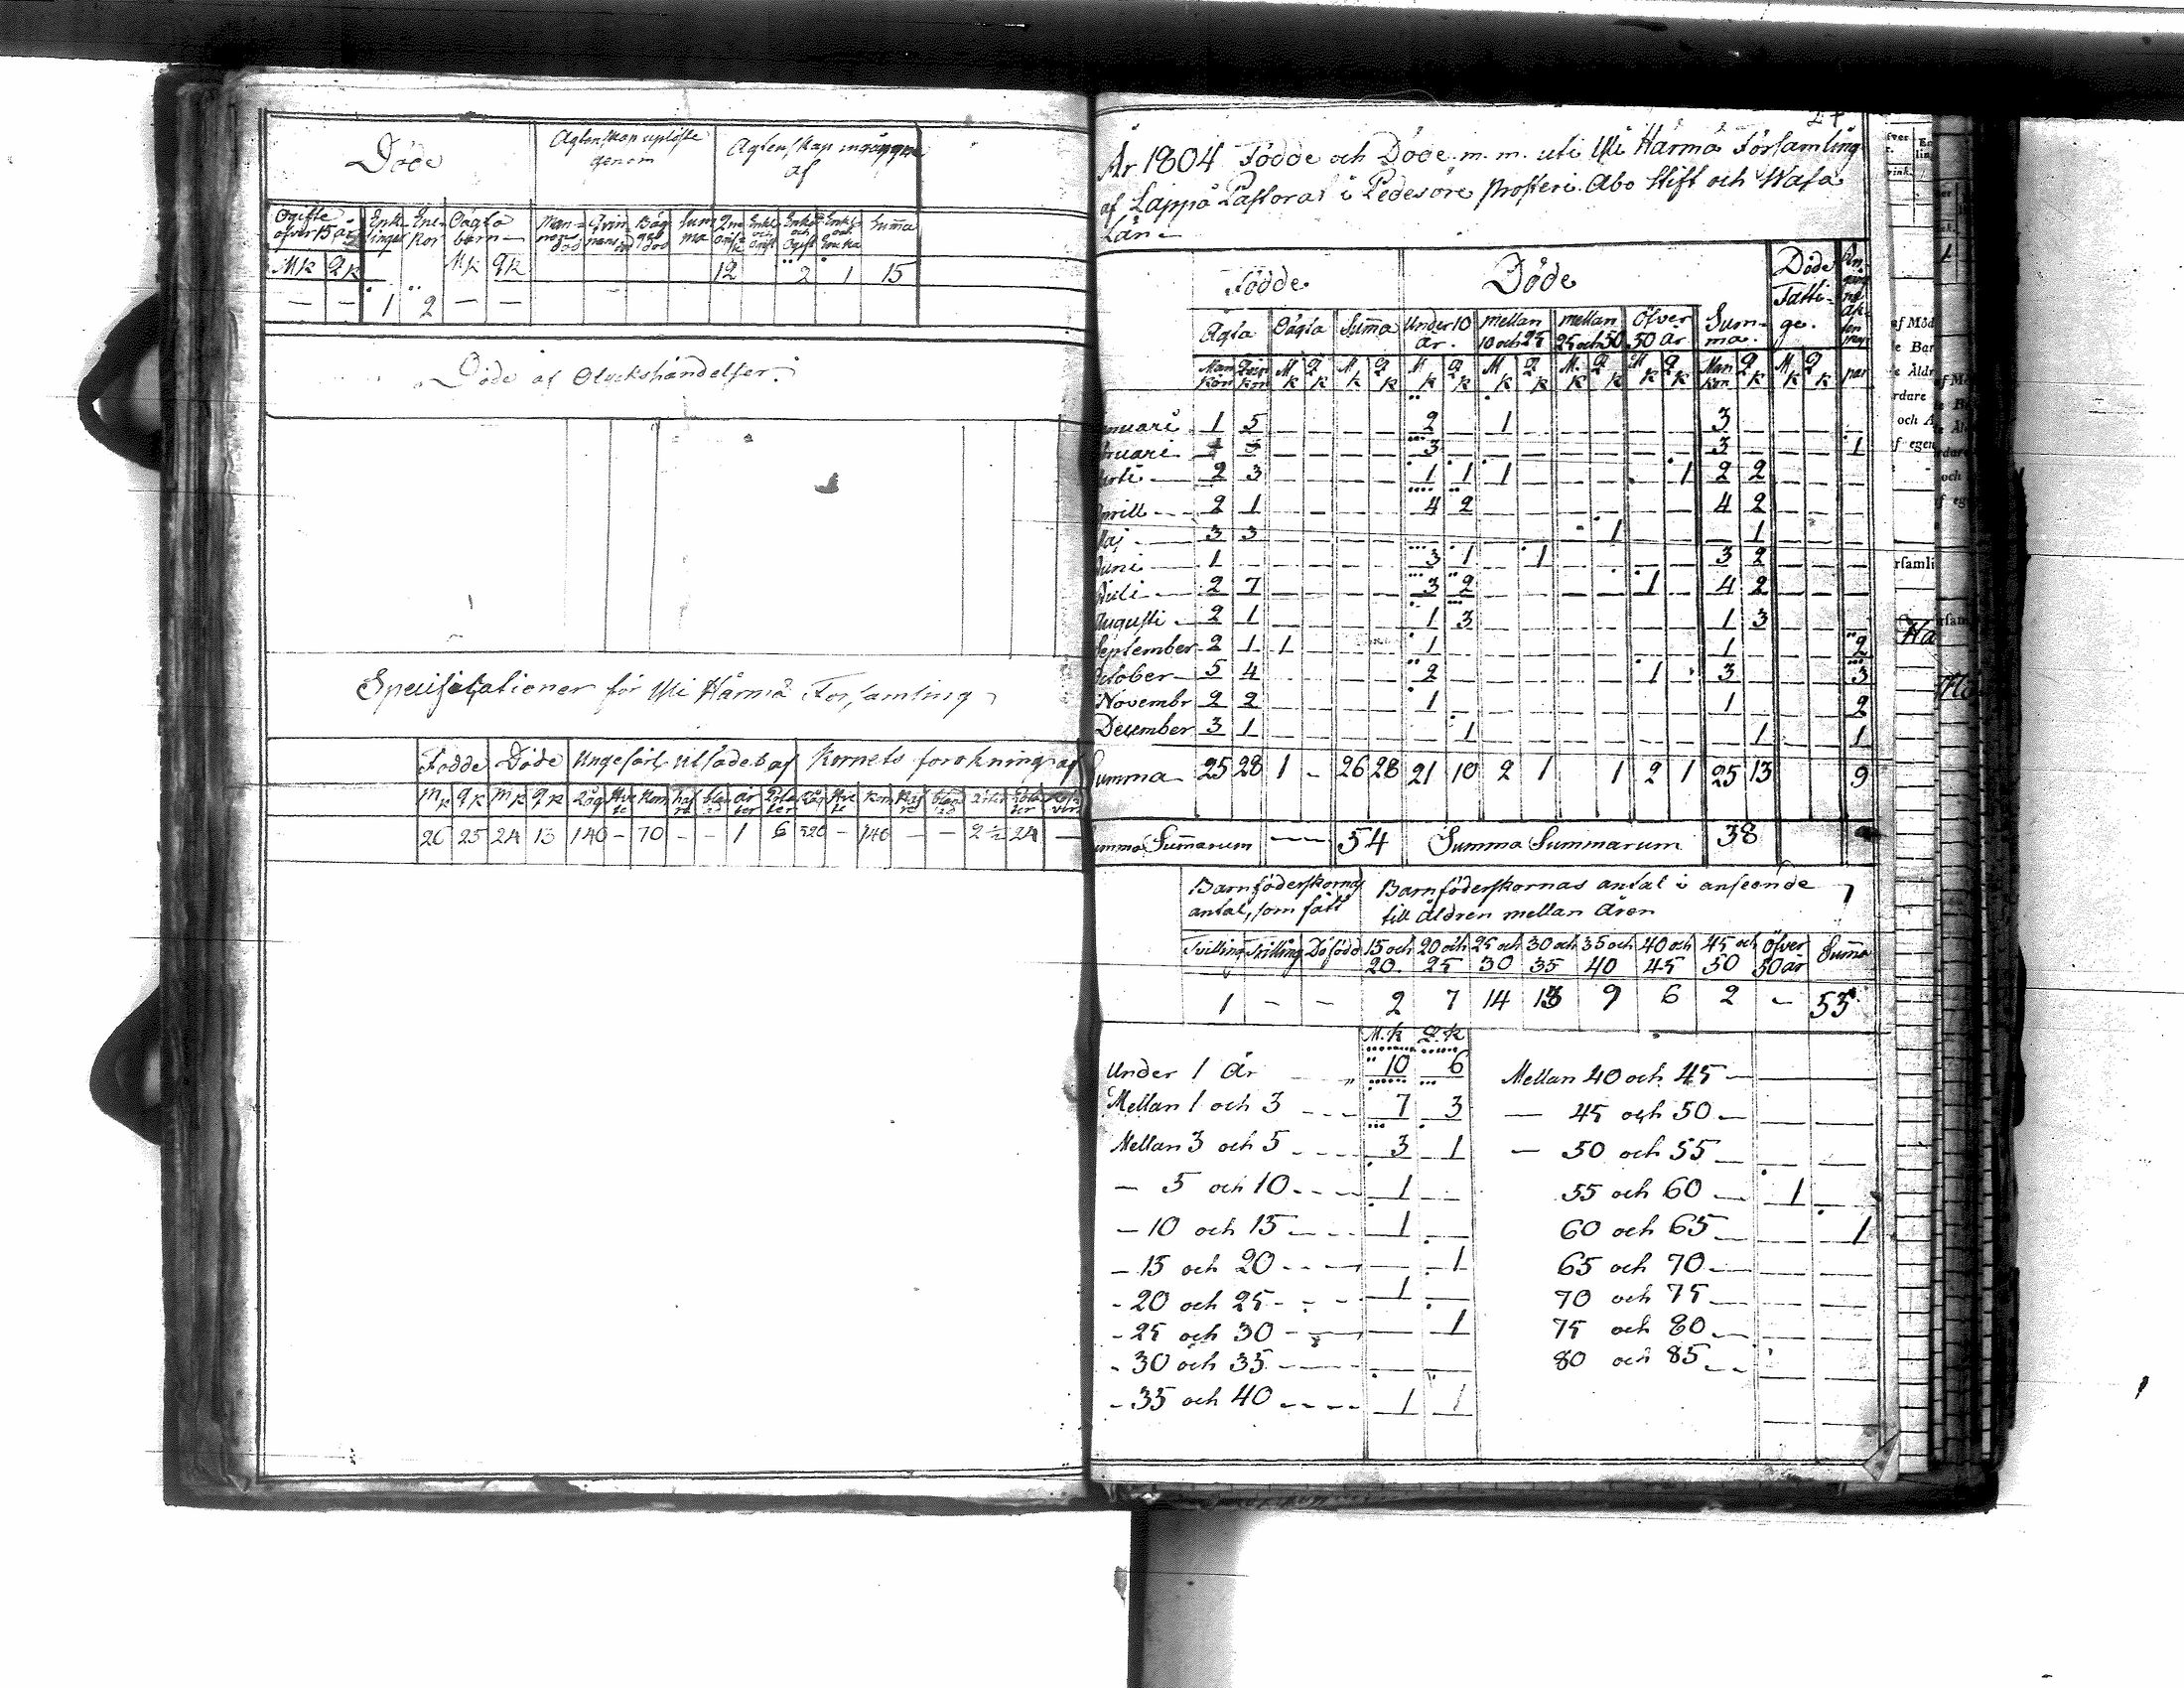 Döde
Ägtenskap uplöste
genom
Ägtenskap ingångne
af
Ogifte
öfver 15 år
Enk-
lingar
En-
kor
Oägta
barn
Man-
nens
död
Qvin-
nans
död
Båg-
ges
död
Sum
ma
Enkl.
och
Ogift
Enka
och
Ogift
Enkl.
och
Enka
Summa
Mk Qk Mk Qk
12 2 1 15
— — 1 2 — —
Döde af Olyckshändelser.
Specificationer för Ylli Härmä Församling
Födde Döde Ungefärl. utsädet af Kornets förökning af
Mk Qk Mk Qk Råg Hve
te Korn
26 25 24 13 140 — 70 — — 1 6 520 — 140 — — 2½ 24 —
År 1804 Födde och Döde m. m. uti Ylli Härmä Församling
af Lappo Pastorat i Pedersöre Prosteri Åbo Stift och Wasa
Län
Födde Döde Döde
Fatti-
ge.
Ägta Oägta Summa Under 10
år. mellan
10 och 25 mellan
25 och 50 öfver
50 år Sum-
ma.
Man
kön Qvin
kön M
k Q
k M
k Q
k M
k Q
k M
k Q
k M
k Q
k M
k Q
k Man
kön Q
k M
k Q
k par
anuari 1 5 2 1 3
bruari 3 3 1
arti 2 3 1 1 1 1 2 2
prill 2 1 4 2 4 2
Maj 3 3 1 1
Juni 1 3 1 1 3 2
Juli 2 7 3 2 1 4 2
Augusti 2 1 1 3 1 3
September 2 1 1 1 1 2
October 5 4 2 1 3 3
Novembr 2 2 1 1 2
December 3 1 1 1 1
Summa 25 28 1 — 26 28 21 10 2 1 1 2 1 25 13 9
umma Summarum — 54 Summa Summarum 38
Barnföderskornas
antal, som fått
Barnföderskornas antal i anseende
till åldren mellan åren
Tvilling Trilling Dödfödd 15 och
20 20 och
25 25 och
30 30 och
35 35 och
40 40 och
45 45 och
50 öfver
50 år Summa
1 — — 2 7 14 13 9 6 2 — 53
M.k Q.k
Under 1 år 10 6 Mellan 40 och 45
Mellan 1 och 3 7 3 — 45 och 50
Mellan 3 och 5 3 1 — 50 och 55
— 5 och 10 1 55 och 60 1
— 10 och 15 1 60 och 65 1
— 15 och 20 1 65 och 70
- 20 och 25 1 70 och 75
- 25 och 30 1 75 och 80
- 30 och 35 80 och 85
- 35 och 40 1 1